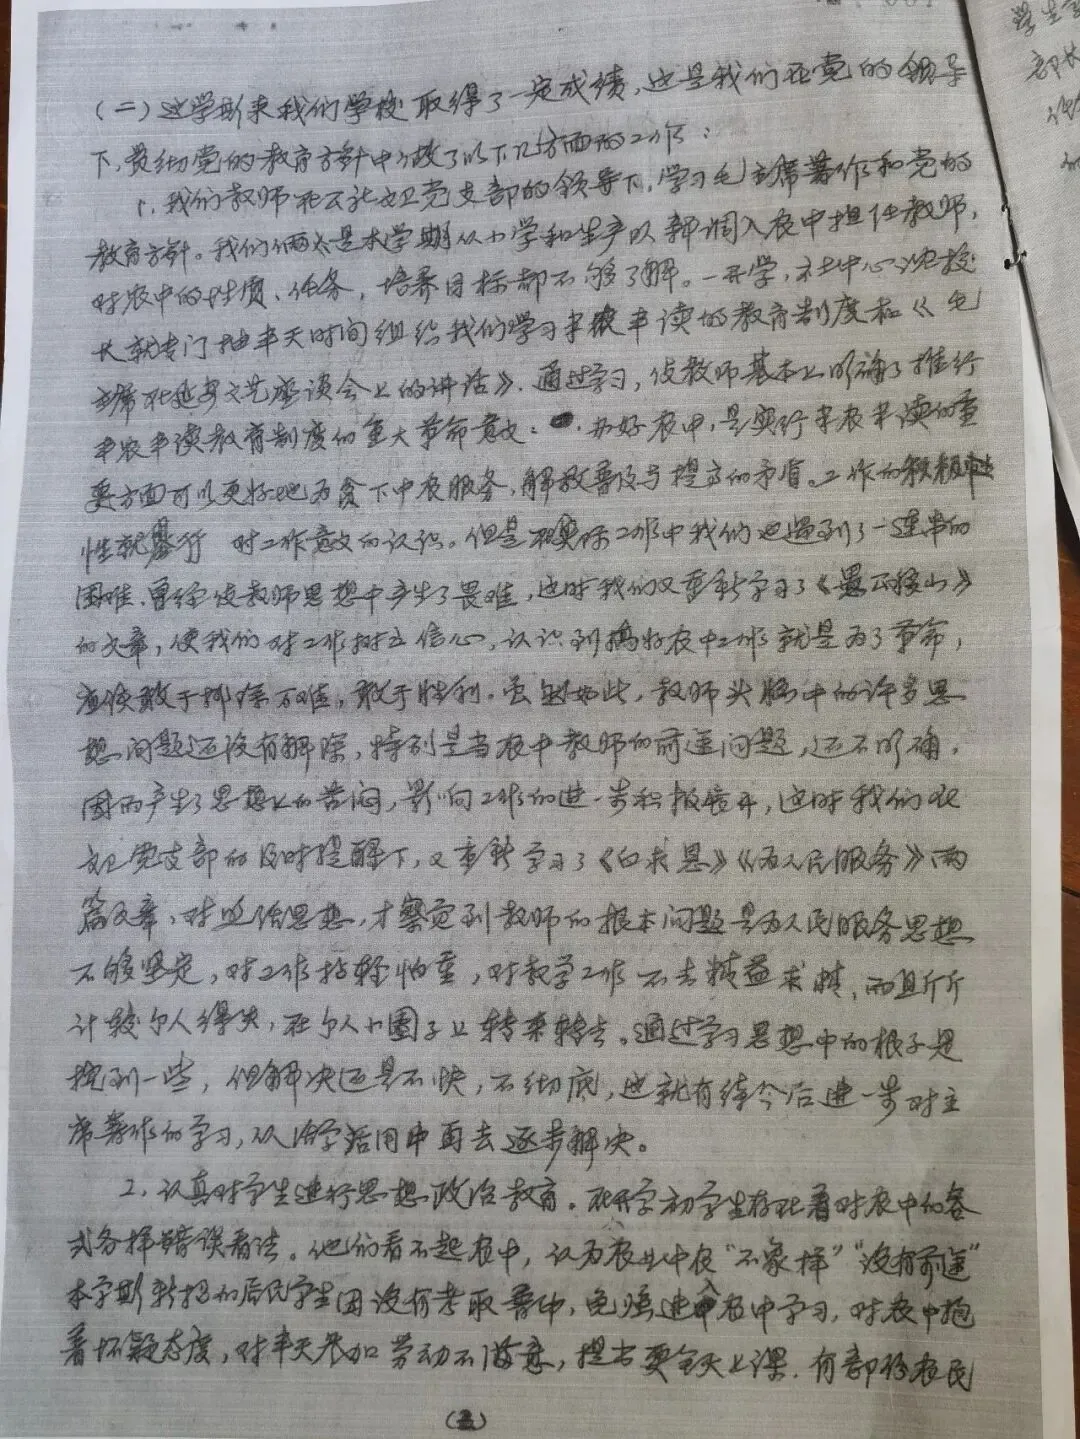 (二)这学期来我们学校取得了一定成绩,这是我们在党的领导
下,贯彻党的教育方针中做了以下几方面的工作:
1、我们教师在公社文卫党支部的领导下,学习毛主席著作和党的
教育方针。我们俩人是本学期从小学和生产队新调入农中担任教师,
对农中的性质、任务,培养目标都不够了解。一开学,社中心沈校
长就专门抽半天时间组织我们学习半农半读的教育制度和《毛
主席在延安文艺座谈会上的讲话》,通过学习,使教师基本上明确了推行
半农半读教育制度的重大革命意义:办好农中,是实行半农半读的重
要方面可以更好地为贫下中农服务,解教普及与提高的矛盾。工作的积极
性就 对工作意义的认识。但是在实际工作中我们也遇到了一连串的
困难、曾经使教师思想中产生了畏难,这时我们又重新学习了《愚公移山》
的文章,使我们对工作树立信心,认识到搞好农中工作就是为了革命,
敢于排除万难,敢于胜利。虽然如此,教师头脑中的许多思
想问题还没有解除,特别是当农中教师的前途问题,还不明确,
因而产生了思想上的苦闷,影响工作的进一步积极展开,这时我们在
文卫党支部的及时提醒下,又重新学习了《白求恩》《为人民服务》两
篇文章,对照思想,才察觉到教师的根本问题是为人民服务思想
不够坚定,对工作拈轻怕重,对教学工作不去精益求精,而且斤斤
计较个人得失,在个人小圈子上转来转去。通过学习思想中的根子是
挖到一些,但解决还是不快,不彻底,这就有待今后进一步对主
席著作的学习,从活学活用中再去逐步解决。
2、认真对学生进行思想政治教育。在开学初学生存在着对农中的各
式各样错误看法。他们看不起农中,认为农业中校“不象样”“没有前途”
本学期新招的居民学生因没有考取普中,勉强进入农中学习,对农中抱
着怀疑态度,对半天参加劳动不满意,提出要全天上课,有部份农民